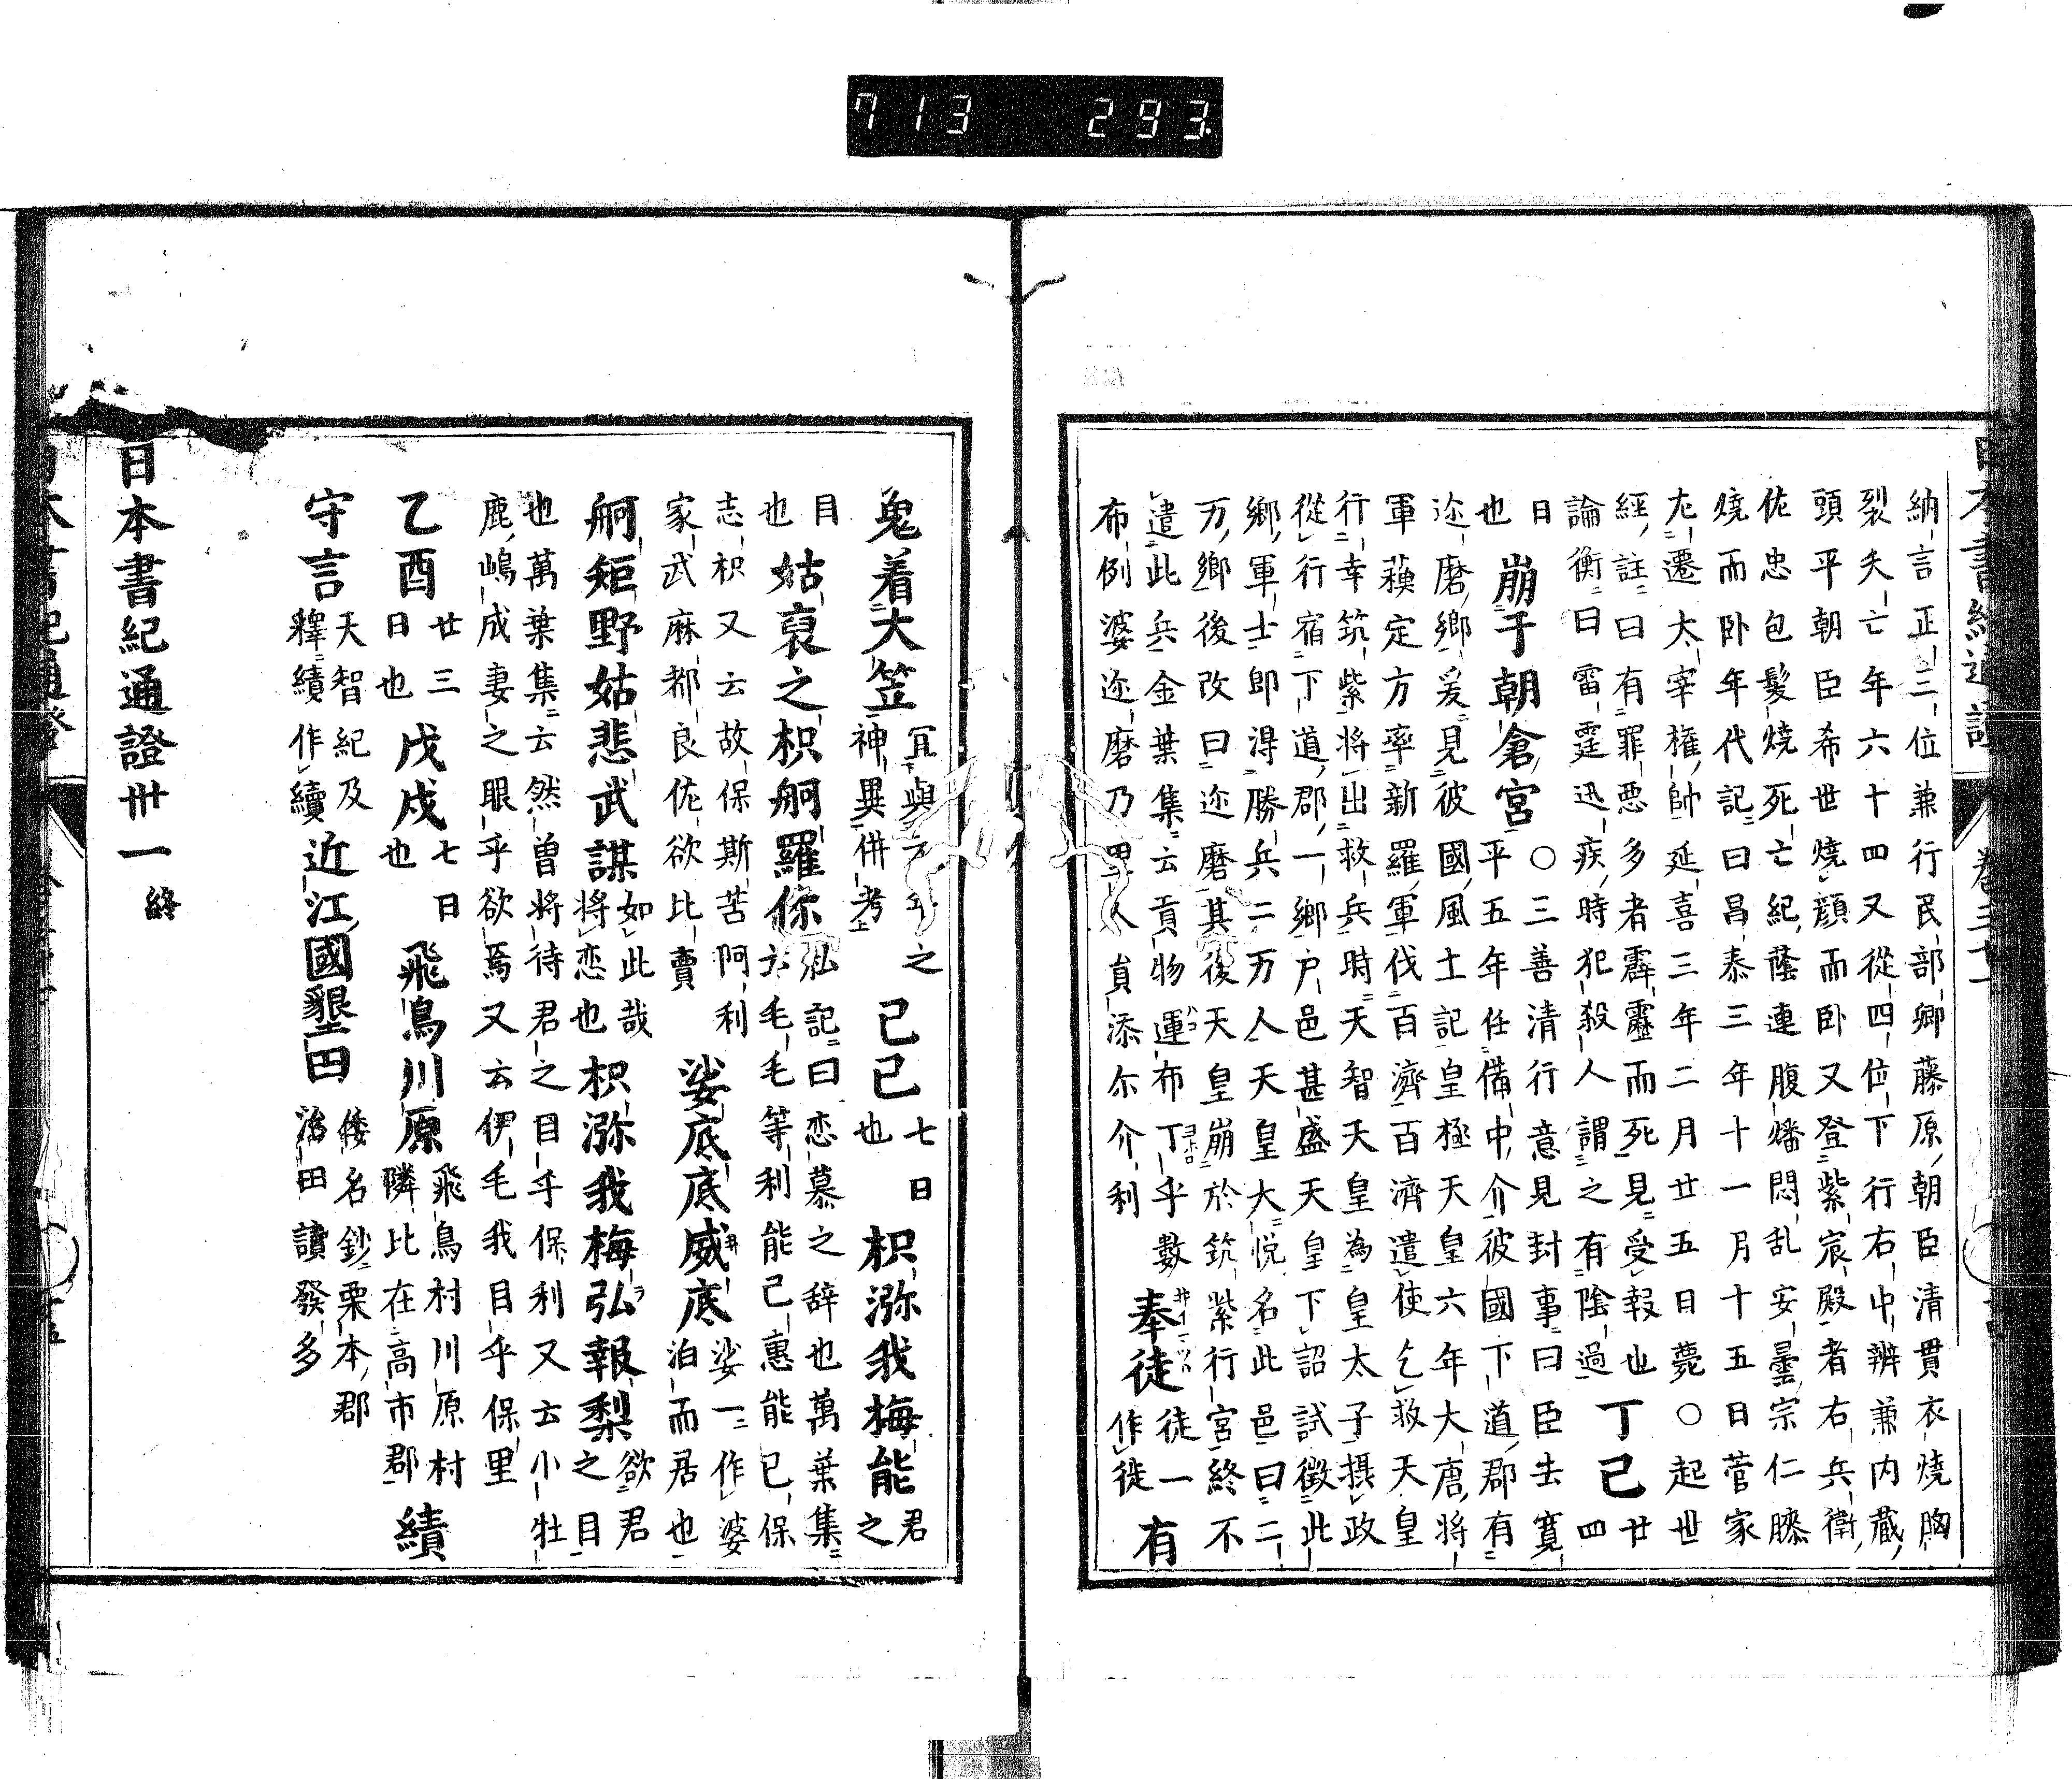 713 293
納言正三位兼行民部卿藤原朝臣清貫衣燒胸
裂夭亡年六十四又從四位下行右中辨兼内藏
頭平朝臣希世燒顔而卧又登紫宸殿者右兵衛
佐忠包髮燒死亡紀蔭連腹燔悶乱安曇宗仁膝
燒而卧年代記曰昌泰三年十一月十五日菅家
左遷太宰權帥延喜三年二月廿五日薨○起世
經註曰有罪惡多者霹靂而死見受報也 丁巳 廿四
論衡曰雷霆迅疾時犯殺人謂之有陰過
日也 崩于朝倉宮 ○三善清行意見封事曰臣去寬
平五年任備中介彼國下道郡有
迩磨鄉爰見彼國風土記皇極天皇六年大唐將
軍蘓定方率新羅軍伐百濟百濟遣使乞救天皇
行幸筑紫將出救兵時天智天皇為皇太子攝政
從行宿下道郡一鄉戸邑甚盛天皇下詔試徵此
鄉軍士即得勝兵二万人天皇大悅名此邑曰二
万鄉後改曰迩磨其後天皇崩於筑紫行宮終不
遣此兵金葉集云貢物運布丁乎數
布例婆迩磨乃里人員添尓介利 奉徒 徒一作徙 有
鬼着大笠 之神異併考上 己巳 七日也 枳濔我梅能 君之
目也 姑裒之枳舸羅你 私記曰恋慕之辞也萬葉集
六毛毛等利能己惠能已保
志枳又云故保斯苦阿利
家武麻都良佐欲比賣 娑底底威底 娑一作婆
泊而居也
舸矩野姑悲武謀 如此哉將恋也 枳濔我梅弘報梨 欲君之目
也萬葉集云然曽將待君之目乎保利又云小牡
鹿嶋成妻之眼乎欲焉又云伊毛我目乎保里
乙酉 廿三日也 戊戌 七日也 飛鳥川原 飛鳥村川原村
隣比在高市郡 續
守言 天智紀及釋續作續 近江國墾田 倭名鈔栗本郡
治田讀發多
日本書紀通證卅一 終